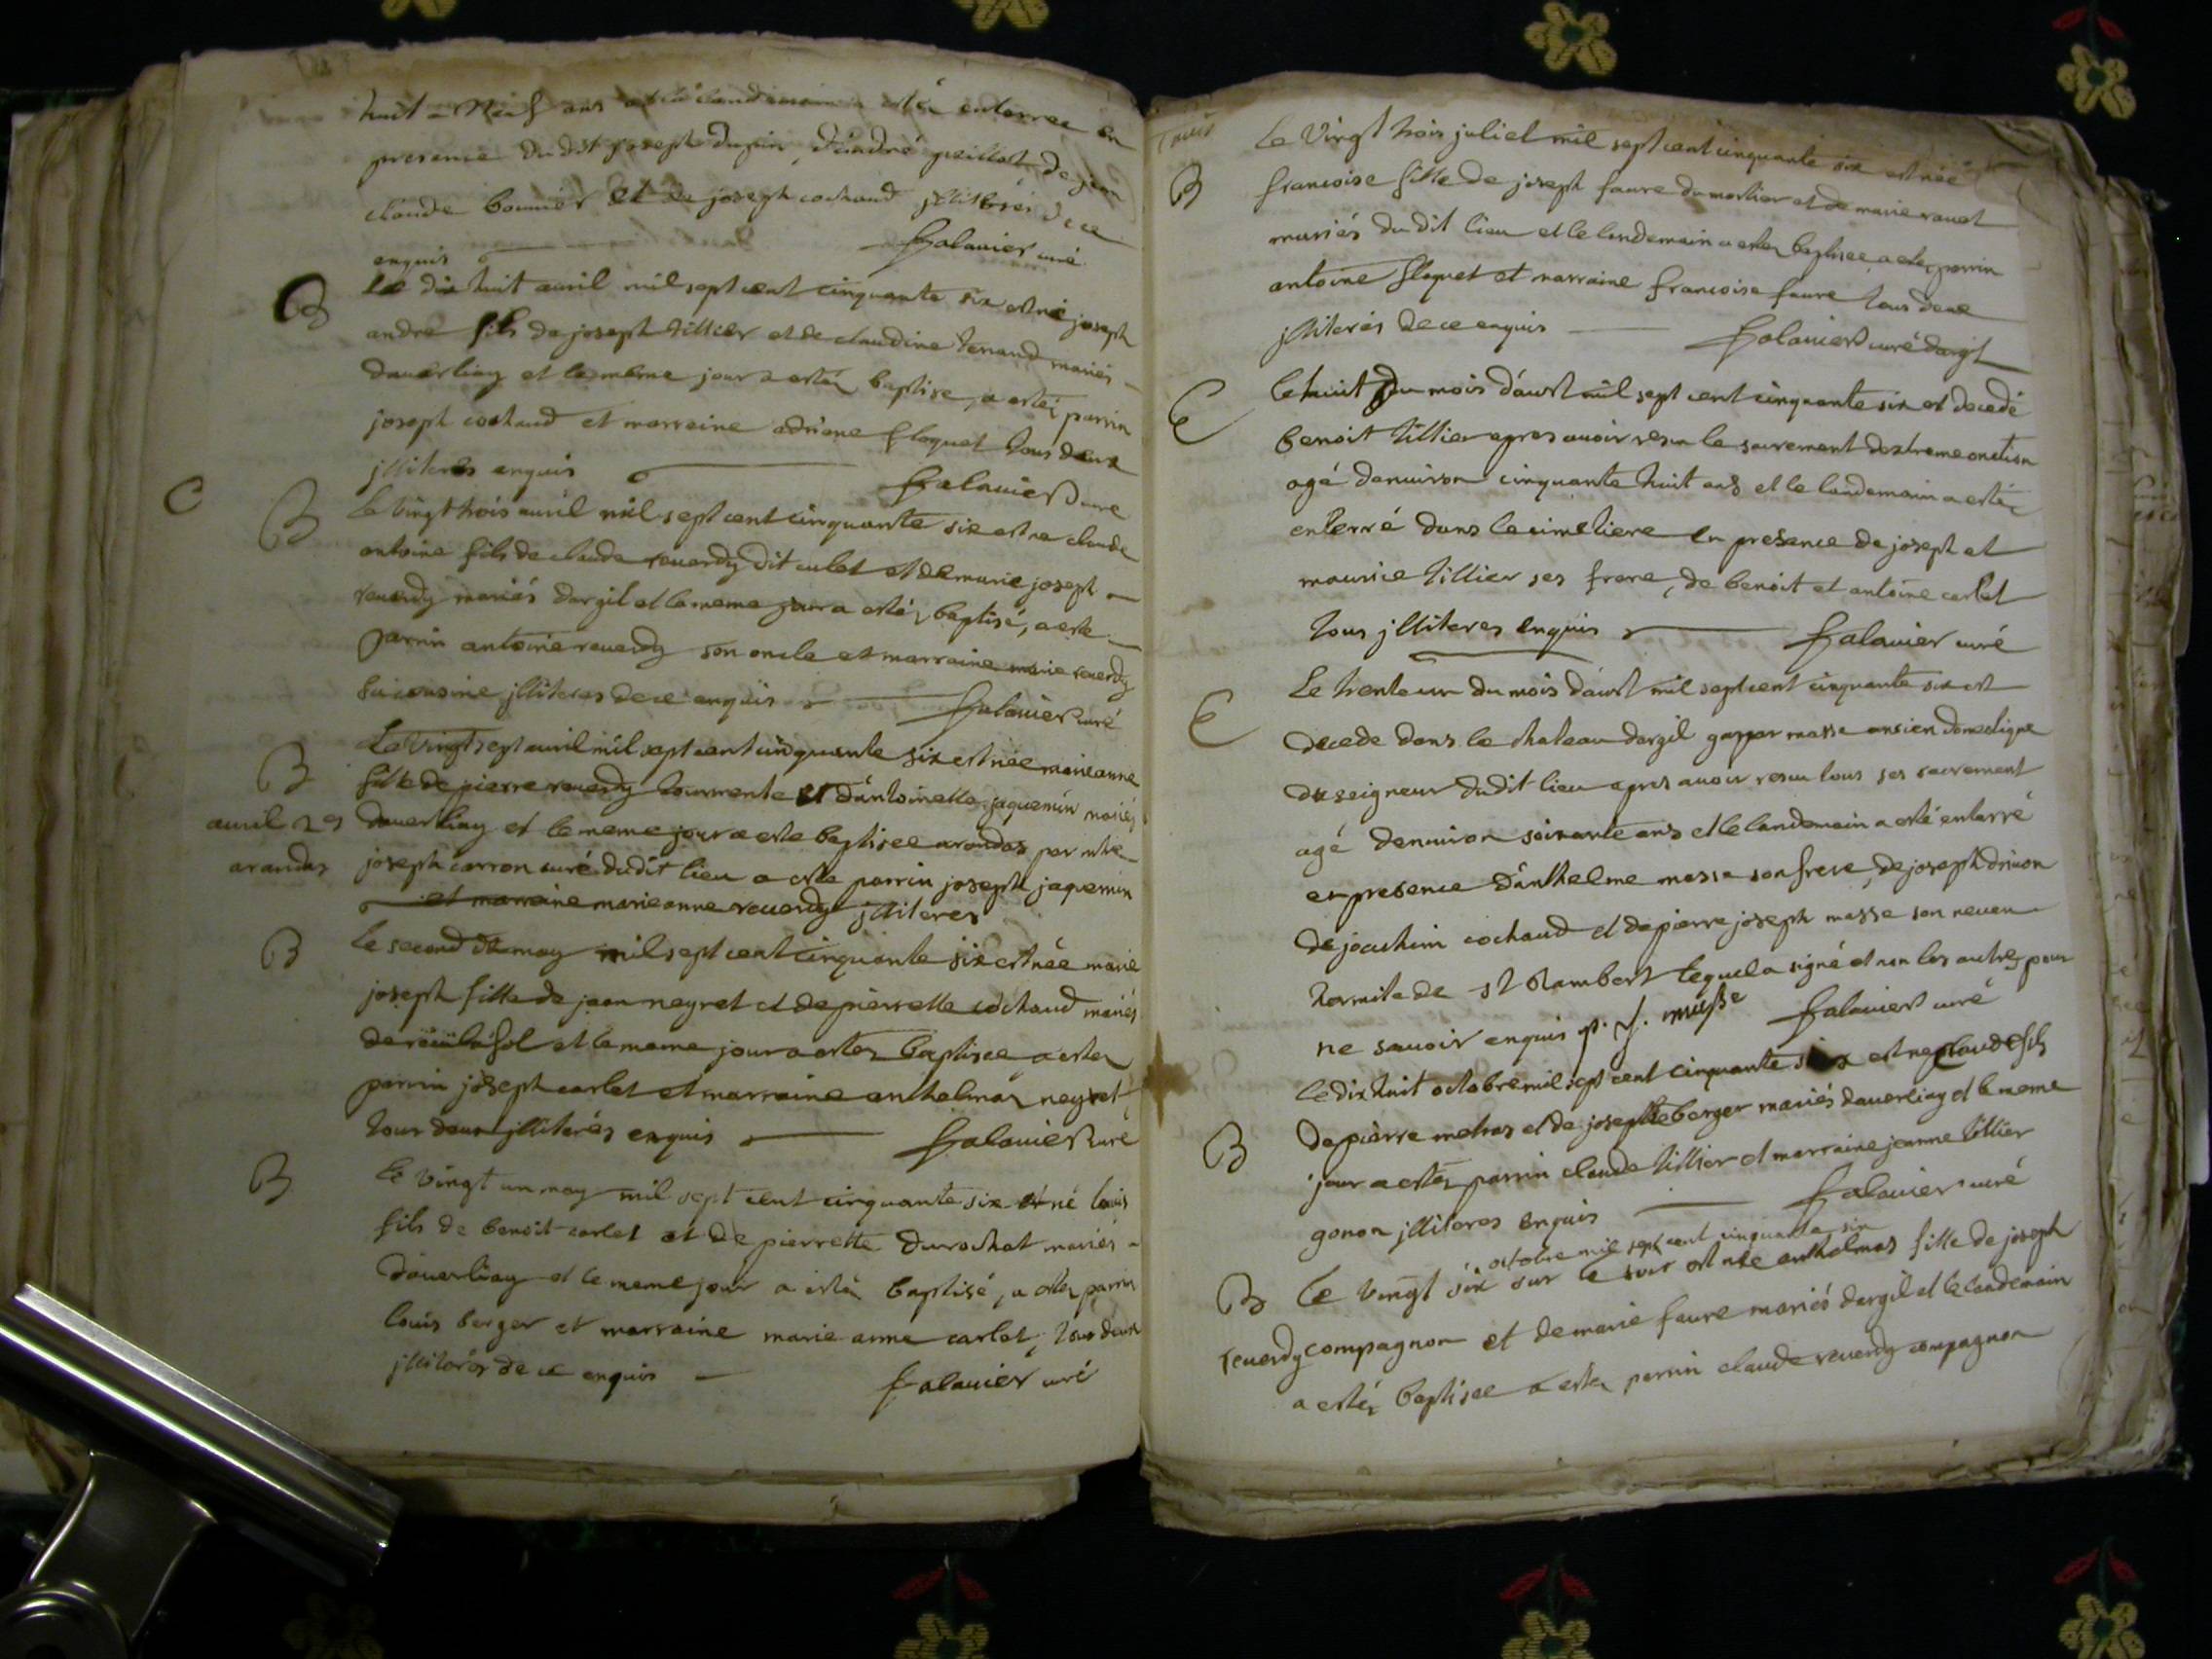 huit a Neuf ans et le landemain a estéz enterree en
presence du dit joseph dupin, d'andré peillot de jean
claude bonnier et de joseph cochaud jlliterés de ce
enquis falavier curé
B
Le dix huit auril mil sept cent cinquante six est né joseph
andre fils de joseph tillier et de claudine tenand mariés
dauerliay et le même jour a estéz baptise, a estéz parrin
joseph cochaud et marraine adriane floquet tous deux
jlliteres enquis falavier curé
C
B
Le vingt trois auril mil sept cent cinquante six est ne claude
antoine fils de claude reuerdy dit culet et de marie joseph
reuerdy mariés dargil et le meme jour a estéz baptisé, a este
parrin antoine reuerdy son oncle et marraine marie reuerdy
sa cousine jlliteres de ce enquis falavier curé
B
Le vingt sept auril mil sept cent cinquante six est née marieanne
fille de pierre reuerdy tourmente et d'antoinette jaquemin mariés
auril 29
dauerliay et le meme jour a este baptisee arandas par mtre
arandas
joseph carron curé dudit lieu a este parrin joseph jaquemin
et marraine marieanne reuerdy jlliteres
B
le second de may mil sept cent cinquante six est née marie
joseph fille de jean neyret et de pierrette cochaud mariés
de reculafol et le meme jour a estez baptisee a estez
parrin joseph carlet et marraine anthelmaz neyret
tous deux jlliterés enquis falavier curé
B
le vingt un may mil sept cent cinquante six est né louis
fils de benoit carlet et de pierrette durochat mariés
dauerliay et le meme jour a estéz baptisé, a estez parrin
louis berger et marraine marie anne carlet, tous deux
jlliterés de ce enquis falavier curé
Le vingt trois juliet mil sept cent cinquante six est née
B
francoise fille de joseph faure du mortier et de marie rauet
mariés du dit lieu et le landemain a estez baptisee a estez parrin
antoine floquet et marraine francoise faure tous deux
jlliterés de ce enquis falavier curé dargil
E
le huit du mois d'aoust mil sept cent cinquante six est decedé
benoit tillier apres auoir resu le sacrement dextreme onction
agé denuiron cinquante huit ans et le landemain a estéz
enterré dans le cimetiere en presence de joseph et
maurice tillier ses frere, de benoit et antoine carlet
tous jlliteres enquis falavier curé
E
Le trente un du mois d'aoust mil sept cent cinquante six est
decede dans le chateau dargil gaspar masse ansien domestique
du seigneur dudit lieu apres auoir resu tous ses sacrement
agé denuiron soixante ans et le landemain a esté enterré
en presence d'anthelme masse son frere, de joseph driuon
de joachim cochaud et de pierre joseph masse son neueu
hermite de st Rambert lequel a signé et non les autres pour
ne sauoir enquis p. j. masse falavier curé
le dix huit octobre mil sept cent cinquante six est ne claude fils
B
de pierre metras et de josephte berger mariés dauerliay et le meme
jour a estez parrin claude tillier et marraine jeanne tillier
gonon jlliteres enquis falavier curé
octobre mil sept cent cinquante six
B
le vingt six sur le soir est née anthelmaz fille de joseph
reuerdy compagnon et de marie faure mariés dargil et le landemain
a estéz baptisee a estez parrin claude reuerdy compagnon